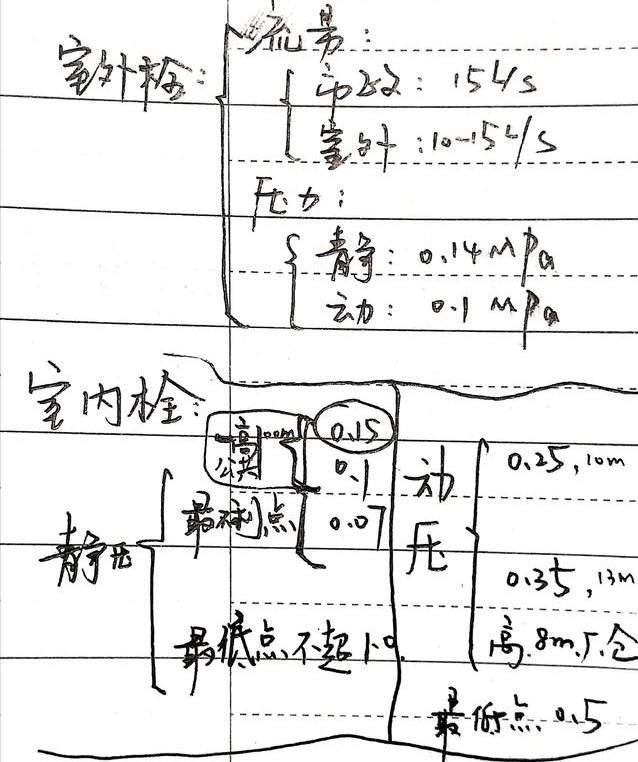 室外栓:
流量:
市政: 15L/s
室外: 10-15L/s
压力:
静: 0.14MPa
动: 0.1MPa
室内栓:
静压
一高公共
100m
0.15
0.1
最不利点
0.07
最低点不超1.0
动压
0.25, 10m
0.35, 13m
高.8m.厂.仓
最低点 0.5